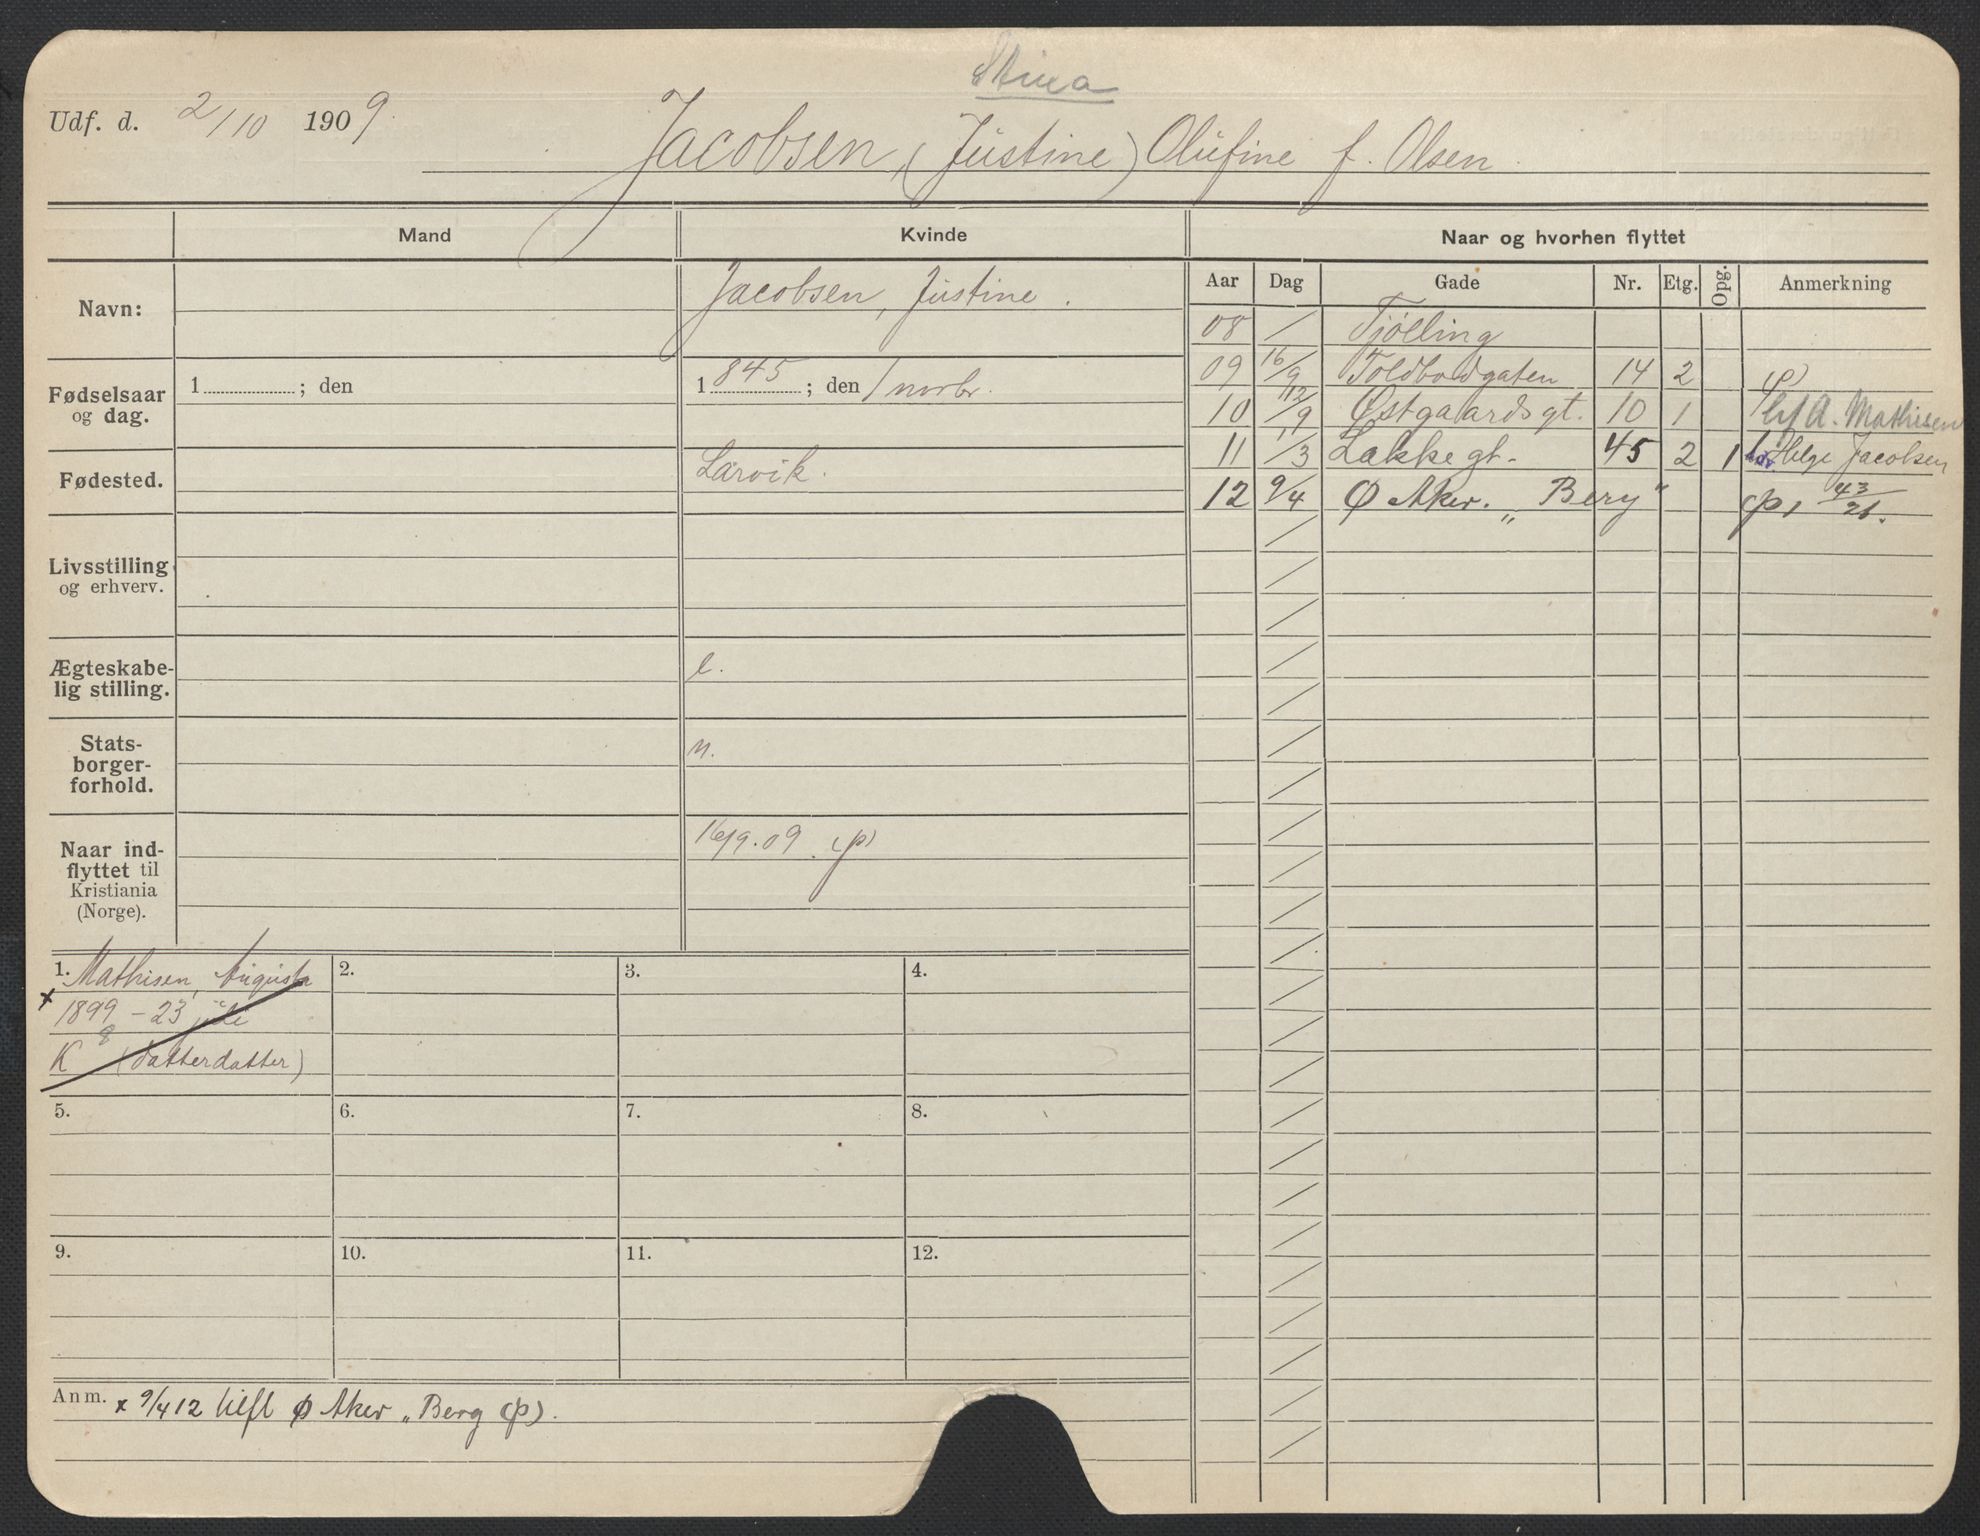 Stina
Udf. d. 2/10 1909.
Jacobsen, (Justine) Olufine f. Olsen.
Mand Kvinde Naar og hvorhen flyttet
Aar Dag Gade Nr. Etg. Opg. Anmerkning
Navn: Jacobsen, Justine.
Fødselsaar og dag. 1 ; den 1845 ; den 1 novbr.
Fødested. Larvik.
Livsstilling og erhverv.
Ægteskabelig stilling. e.
Statsborgerforhold. n.
Naar indflyttet til Kristiania (Norge). 16/9.09. (p)
08 / Tjølling
09 16/9 Toldbodgaten 14 2 (p)
10 12/9 Østgaardsgt. 10 1 hf A. Mathisen
11 /3 Lakkegt. 45 2 1 Helge Jacobsen
12 9/4 Ø Aker. „Berg" (p) 43/21.
1. Mathisen, Augusta
x 1899 - 23 juli
8
K (datterdatter)
2.
3.
4.
5.
6.
7.
8.
9.
10.
11.
12.
Anm. x 9/4 12 tilfl Ø Aker „Berg (p).